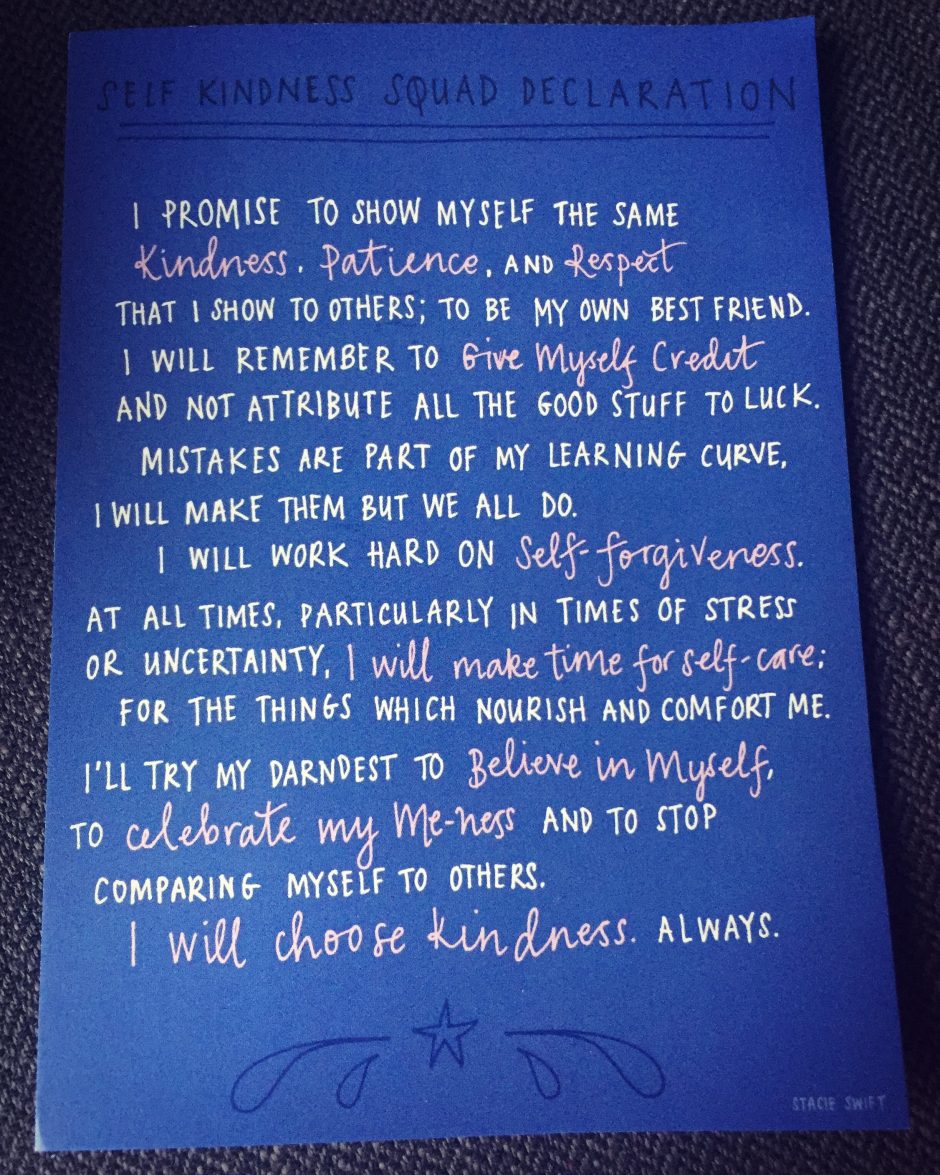 SELF KINDNESS SQUAD DECLARATION
I PROMISE TO SHOW MYSELF THE SAME
Kindness, Patience, AND Respect
THAT I SHOW TO OTHERS; TO BE MY OWN BEST FRIEND.
I WILL REMEMBER TO Give Myself Credit
AND NOT ATTRIBUTE ALL THE GOOD STUFF TO LUCK.
MISTAKES ARE PART OF MY LEARNING CURVE,
I WILL MAKE THEM BUT WE ALL DO.
I WILL WORK HARD ON Self-forgiveness.
AT ALL TIMES, PARTICULARLY IN TIMES OF STRESS
OR UNCERTAINTY, I will make time for self-care;
FOR THE THINGS WHICH NOURISH AND COMFORT ME.
I'LL TRY MY DARNDEST TO Believe in Myself,
TO celebrate my Me-ness AND TO STOP
COMPARING MYSELF TO OTHERS.
I will choose kindness. ALWAYS.
STACIE SWIFT